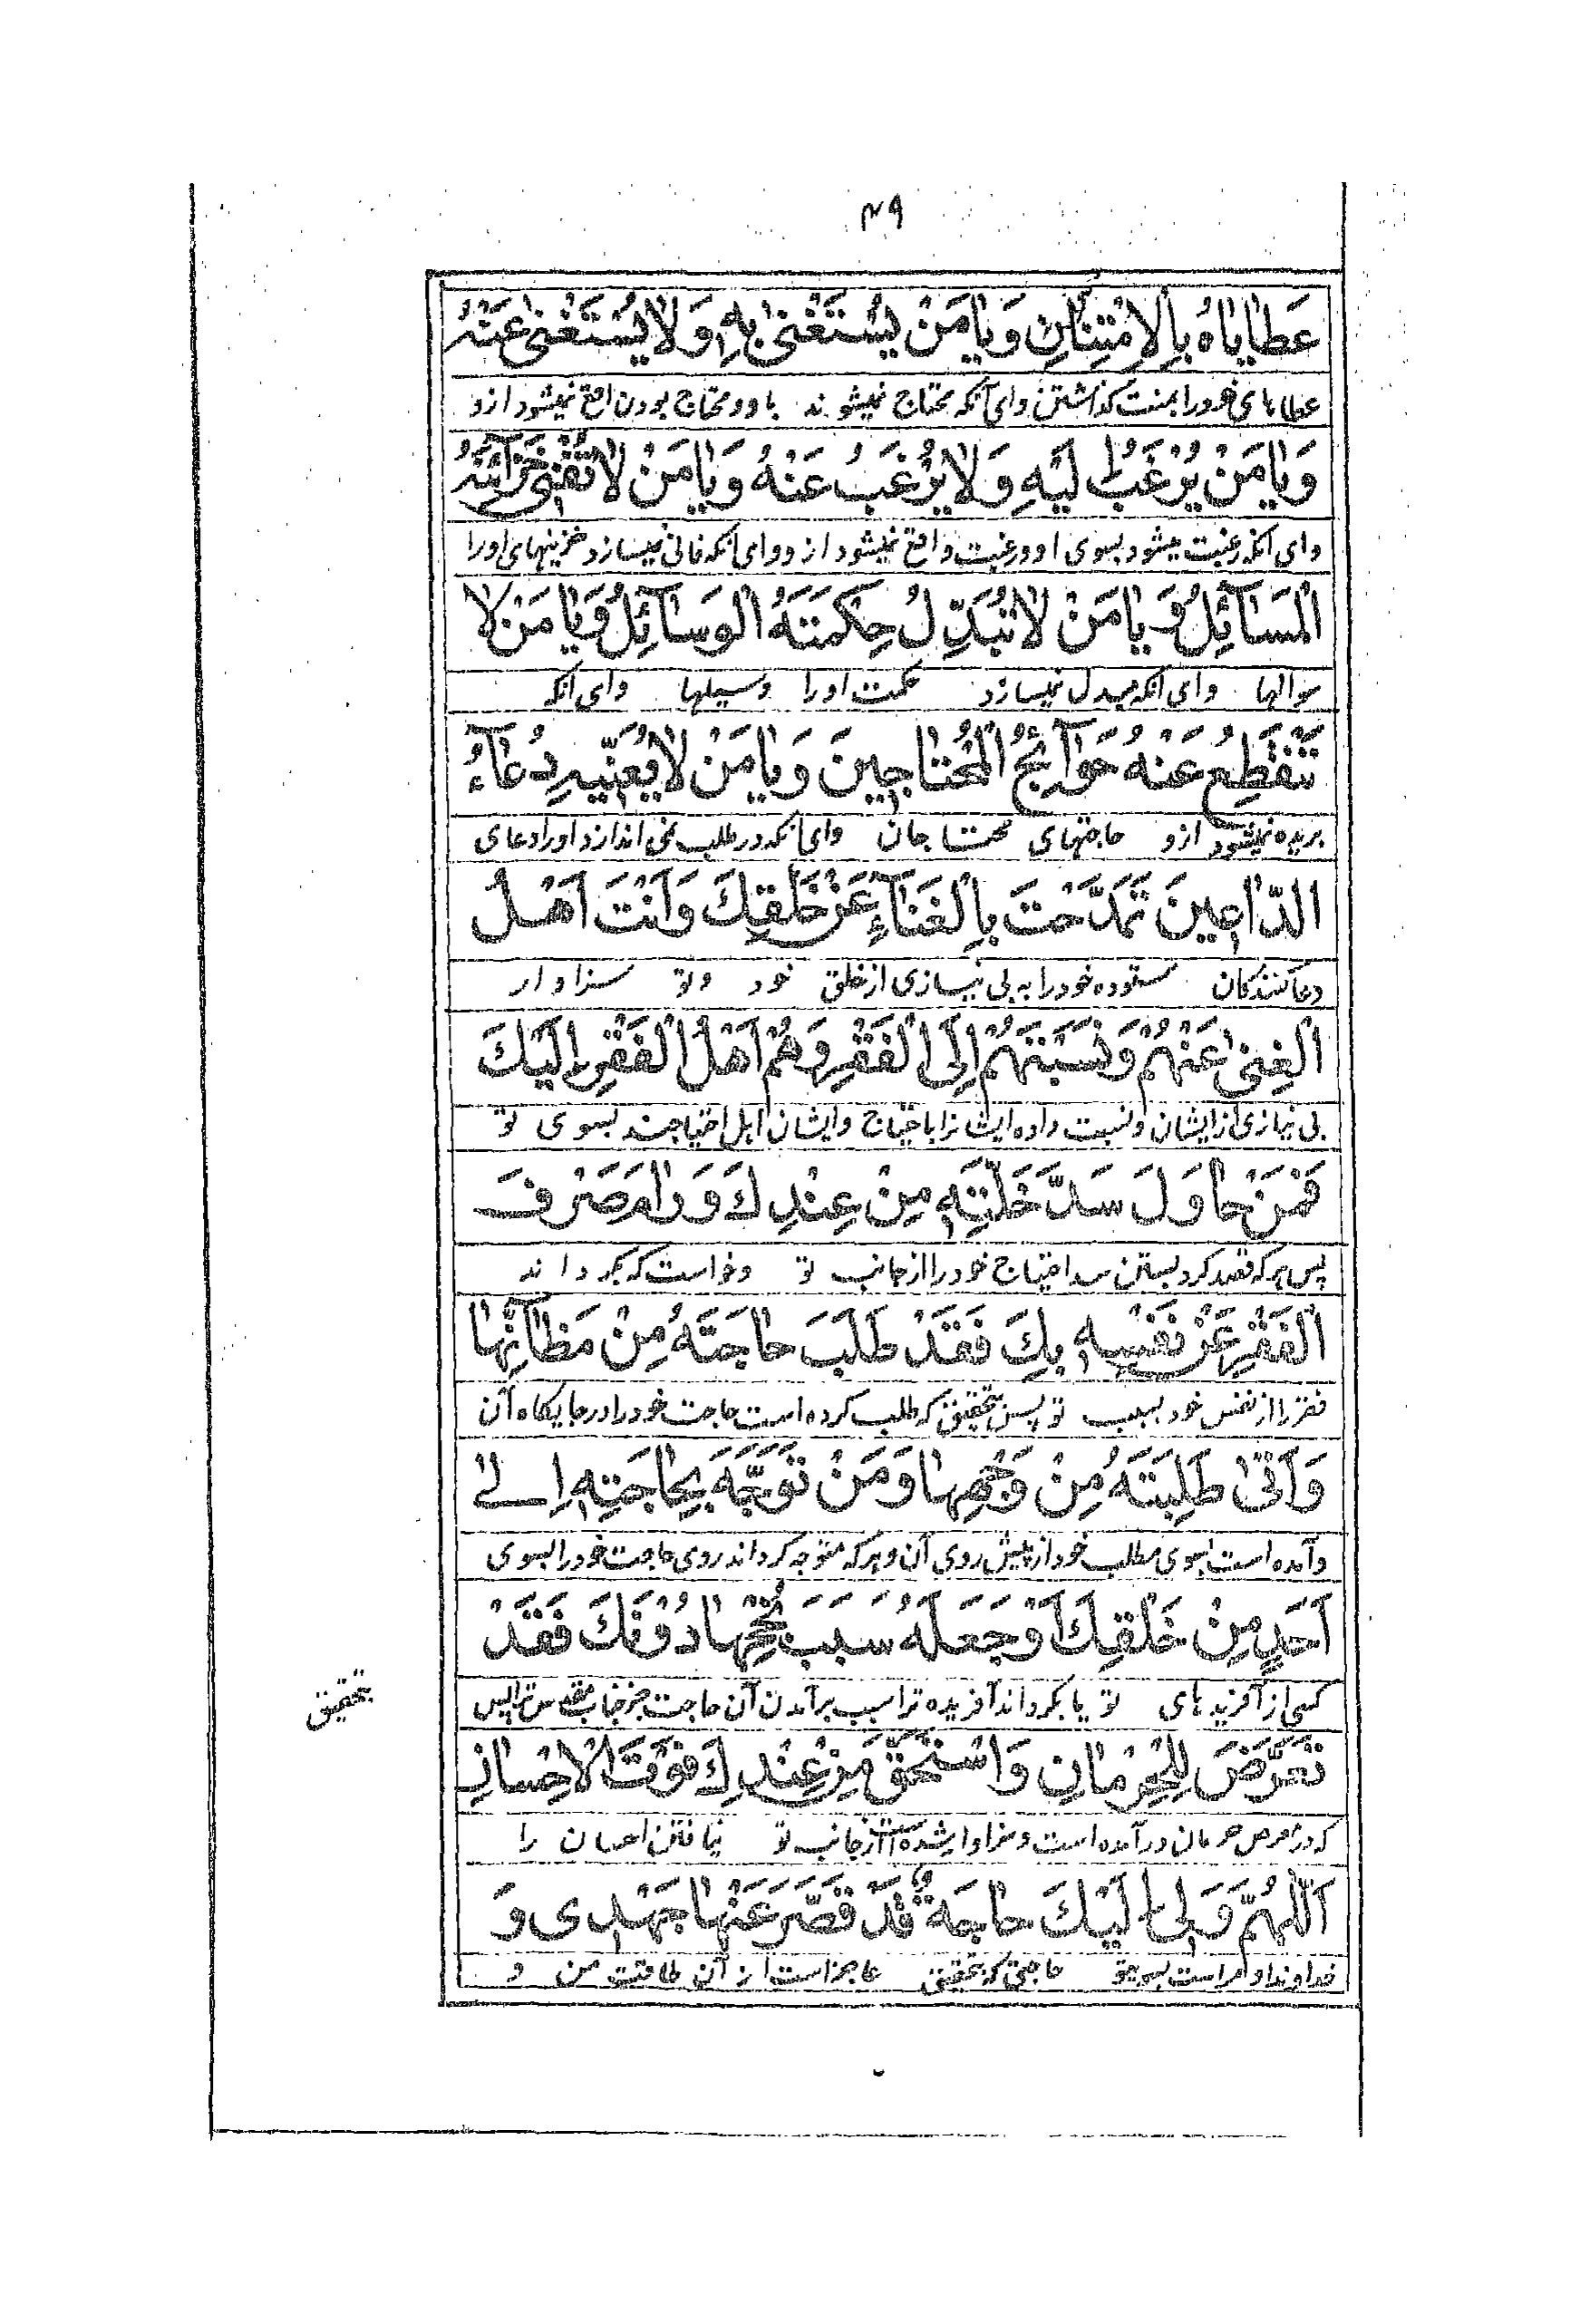 ۴۹
عَطَايَاهُ بِالِامْتِنَانِ وَيَا مَنْ يُسْتَغْنىٰ بِهِ وَلَا يُسْتَغْنىٰ عَنْهُ
عطاهای خود را بمنت گذاشتن وای آنکه محتاج نمیشوند باو و محتاج بودن واقع نمیشود ازو
وَيَا مَنْ يُرْغَبُ اِلَيْهِ وَلَا يُرْغَبُ عَنْهُ وَيَا مَنْ لَا تُفْنِي خَزَآئِنَهُ
وای آنکه رغبت میشود بسوی او و رغبت واقع نمیشود ازو وای انکه فانی نمیسازد خزینهای اورا
الْمَسَآئِلُ وَيَا مَنْ لَا تُبَدِّلُ حِكْمَتَهُ الْوَسَآئِلُ وَيَا مَنْ لَا
سوالها وای انکه مبدل نمیسازد حکمت اورا وسیلها وای انکه
تَنْقَطِعُ عَنْهُ حَوَآئِجُ الْمُحْتَاجِينَ وَيَا مَنْ لَا يُعَنِّيهِ دُعَآءُ
بریده نمیشود ازو حاجتهای محتاجان وای انکه در طلب نمی اندازد اورا دعای
الدَّاعِينَ تَمَدَّحْتَ بِالْغَنَآءِ عَنْ خَلْقِكَ وَاَنْتَ اَهْلُ
دعاکنندکان ستوده خود را به بی نیازی از خلق خود وتو سزاوار
الْغِنىٰ عَنْهُمْ وَنَسَبْتَهُمْ اِلَى الْفَقْرِ وَهُمْ اَهْلُ الْفَقْرِ اِلَيْكَ
بی نیازی از ایشان ونسبت داده ایشانرا باحتیاج وایشان اهل احتیاجند بسوی تو
فَمَنْ حَاوَلَ سَدَّ خَلَّتِهِ مِنْ عِنْدِكَ وَرَامَ صَرْفَ
پس هرکه قصد کرد بستن سد احتیاج خود را از جانب تو وخواست که بگرداند
الْفَقْرِ عَنْ نَفْسِهِ بِكَ فَقَدْ طَلَبَ حَاجَتَهُ مِنْ مَظَآنِّهَا
فقر را از نفس خود بسبب تو پس بتحقیق که طلب کرده است حاجت خود را در جایگاه آن
وَاَتىٰ طَلِبَتَهُ مِنْ وَجْهِهَا وَمَنْ تَوَجَّهَ بِحَاجَتِهِ اِلىٰ
وآمده است بسوی مطلب خود از پیش روی آن و هرکه متوجه کرداند روی حاجت خود را بسوی
اَحَدٍ مِنْ خَلْقِكَ اَوْ جَعَلَهُ سَبَبَ نُجْحِهَا دُونَكَ فَقَدْ
کسی از آفریدهای تو یا بگرداند آفریده ترا سبب برآمدن آن حاجت جز جناب مقدس ترا پس
بتحقیق
تَعَرَّضَ لِلْحِرْمَانِ وَاسْتَحَقَّ مِنْ عِنْدِكَ فَوْتَ الْاِحْسَانِ
که در معرض حرمان در آمده است وسزاوار شده است از جانب تو نیافتن احسان را
اَللّٰهُمَّ وَلِي اِلَيْكَ حَاجَةٌ قَدْ قَصَّرَ عَنْهَا جَهْدِى وَ
خداوندا و مراست بسویتو حاجتی که بتحقیق عاجز است از آن طاقت من و